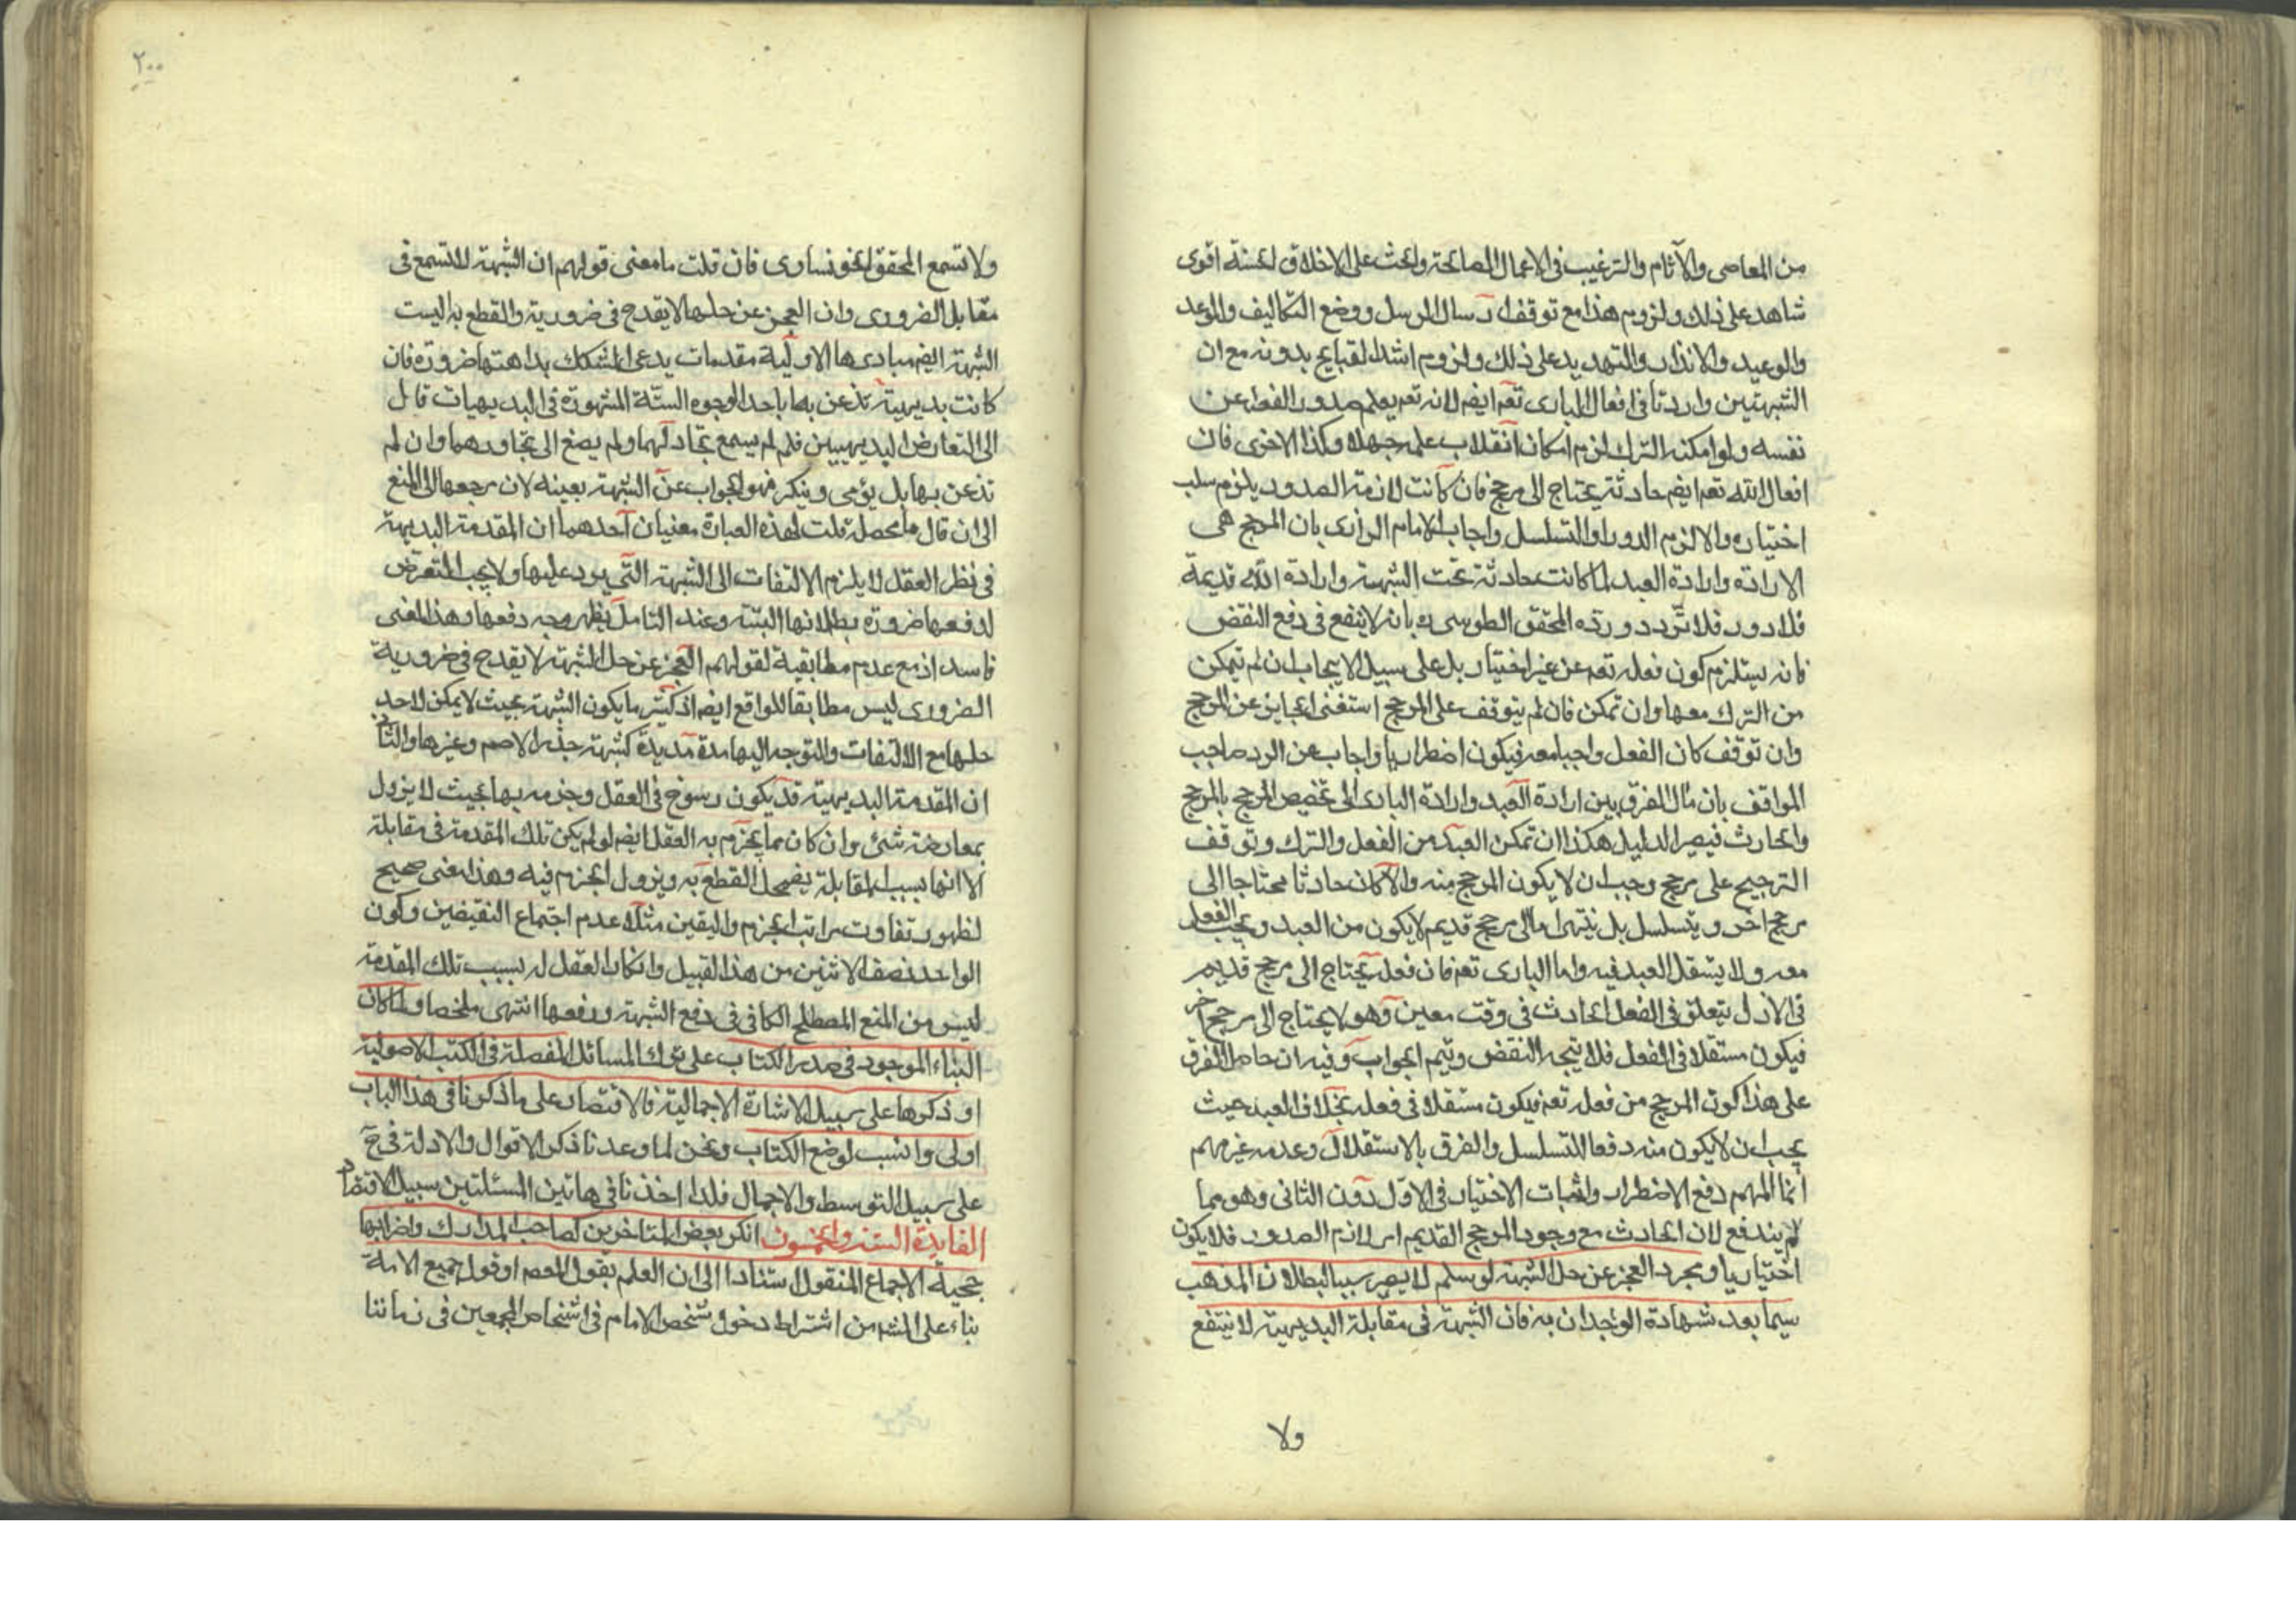 من المعاصى والآثام والترغيب فى الاعمال الصالحة والحث على الاخلاق الحسنة اقوى
شاهد على ذلك ولزوم هذا مع توقف ارسال الرسل ووضع التكاليف والوعد
والوعيد والانذار والتهديد على ذلك ولزوم اشد القبايح بدونه مع ان
الشبهتين واردتا فى افعال البارى تعم ايضم لانه تعم يعلم صدور الفعل عن
نفسه ولو امكنه الترك لزم امكان انقلاب علمه جهلا وكذا الاخرى فان
افعال الله تعم ايضم حادثة يحتاج الى مرجح فان كانت لازمة الصدور يلزم سلب
اختياره والا لزم الدور او التسلسل واجاب الامام الرازى بان المرجح هى
الارادة وارادة العبد لما كانت حادثة تحت الشبهة وارادة الله قديمة
فلا دور فلا تردد ورده المحقق الطوسى ره بانه لا ينفع فى دفع النقض
فانه يستلزم كون فعله تعم عن غير اختيار بل على سبيل الايجاب ان لم يتمكن
من الترك معها وان تمكن فان لم يتوقف على المرجح استغنى الجايز عن المرجح
وان توقف كان الفعل واجبا معه فيكون اضطراريا واجاب عن الرد صاحب
المواقف بان مآل الفرق بين ارادة العبد وارادة البارى الى تخصيص المرجح بالمرجح
والحادث فيصير الدليل هكذا ان تمكن العبد من الفعل والترك وتوقف
الترجيح على مرجح وجب ان لا يكون المرجح منه والا كان حادثا محتاجا الى
مرجح اخر ويتسلسل بل ينتهى اما الى مرجح قديم لا يكون من العبد ويجب الفعل
معه ولا يستقل العبد فيه واما البارى تعم فان فعله يحتاج الى مرجح قديم
فى الازل يتعلق فى الفعل الحادث فى وقت معين وهو لا يحتاج الى مرجح اخر
فيكون مستقلا فى الفعل فلا يتجه النقض ويتم الجواب وفيه ان حاصل الفرق
على هذا كون المرجح من فعله تعم فيكون مستقلا فى فعله بخلاف العبد حيث
يجب ان لا يكون منه دفعا للتسلسل والفرق بالاستقلال وعدمه غير مهم
انما المهم دفع الاضطرار واثبات الاختيار فى الاول دون الثانى وهو مما
لم يندفع لان الحادث مع وجود المرجح القديم امر لازم الصدور فلا يكون
اختياريا ومجرد العجز عن حل الشبهة لو سلم لا يصير سببا لبطلان المذهب
سيما بعد شهادة الوجدان به فان الشبهة فى مقابلة البديهية لا ينتفع
ولا
٢٠٠
ولا تسمع المحقق الخونسارى فان قلت ما معنى قولهم ان الشبهة لا تسمع فى
مقابل الضرورى وان العجز عن حلها لا يقدح فى ضرورية والقطع به اليست
الشبهة ايضم مبادىها الاولية مقدمات يدعى المشكك بداهتها ضرورة فان
كانت بديهية تذعن بها باحد الوجوه الستة المشهورة فى البديهيات قابل
الى التعارض البديهيين فلم لم يسمع تجادلهما ولم يصغ الى تجاورهما وان لم
تذعن بها بل يؤمى وينكر فهو الجواب عن الشبهة بعينه لان مرجعها الى المنع
الى ان قال ما محصله قلت لهذه العبارة معنيان احدهما ان المقدمة البديهية
فى نظر العقل لا يلزم الالتفات الى الشبهة التى يرد عليها ولا يجب التعرض
لدفعها ضرورة بطلانها البتة وعند التامل يظهر وجه دفعها وهذا المعنى
فاسد اذ مع عدم مطابقية لقولهم العجز عن حل الشبهة لا يقدح فى ضرورية
الضرورى ليس مطابقا للواقع ايضم اذ كثير ما يكون الشبهة بحيث لا يمكن لاحد
حلها مع الالتفات والتوجه اليها مدة مديدة كشبهة جذر الاصم وغيرها والثانى
ان المقدمة البديهية قد يكون رسوخ فى العقل وجزمه بها بحيث لا يزول
بمعارضة شئ وان كان مما يجزم به العقل ايضم لو لم يكن تلك المقدمة فى مقابلة
الا انها بسبب المقابلة يضمحل القطع به ويزول الجزم فيه وهذا معنى صحيح
لظهور تفاوت مراتب الجزم واليقين مثلا عدم اجتماع النقيضين وكون
الواحد نصف الاثنين من هذا القبيل وانكار العقل له بسبب تلك المقدمة
ليس من المنع المصطلح الكافى فى دفع الشبهة ورفعها انتهى ملخصا ولما كان
البناء الموجود فى صدر الكتاب على ترك المسائل المفصلة فى الكتب الاصولية
او ذكرها على سبيل الاشارة الاجمالية فالاقتصار على ما ذكرنا فى هذا الباب
اولى وانسب لوضع الكتاب ونحن لما وعدنا ذكر الاقوال والادلة فى
على سبيل التوسط والاجمال فلذا اخذنا فى هاتين المسئلتين سبيل الاقتصاد
الفايدة الستة والخمسون انكر بعض المتاخرين كصاحب المدارك واضرابها
حجية الاجماع المنقول استنادا الى ان العلم بقول المعصم او قول جميع الامة
بناء على المشم من اشتراط دخول شخص الامام فى اشخاص المجمعين فى زماننا